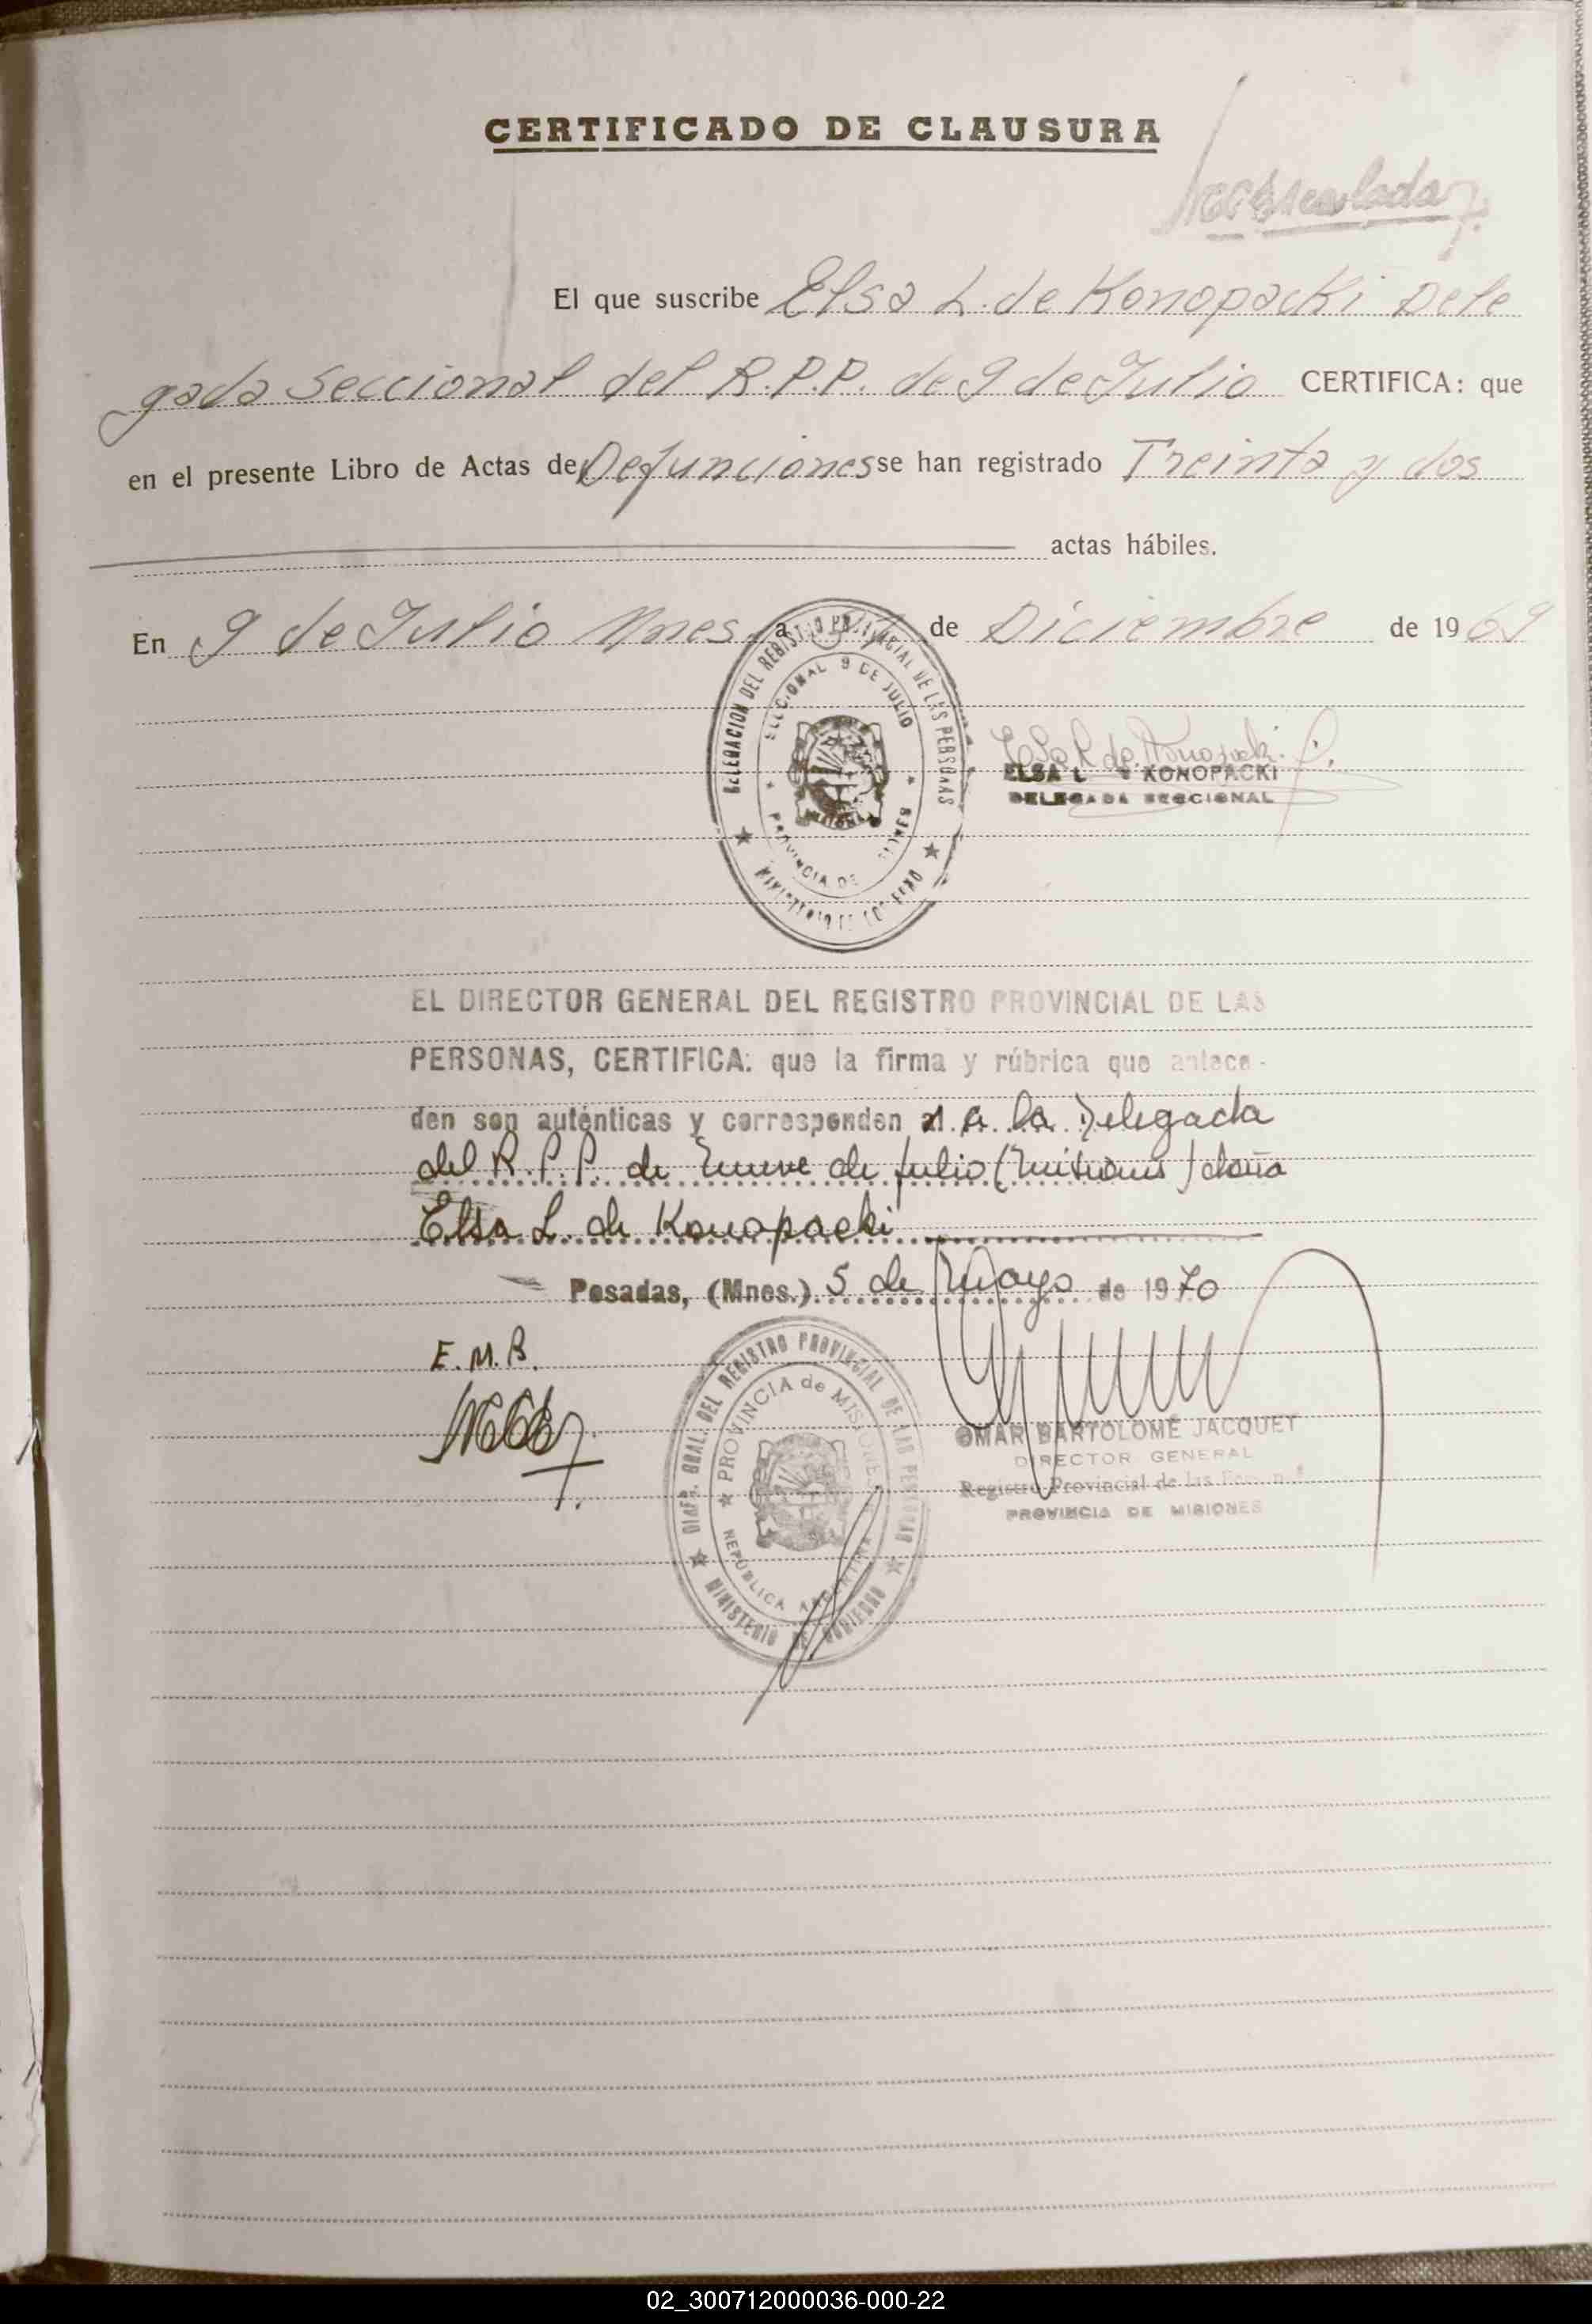 CERTIFICADO DE CLAUSURA
El que suscribe Elsa L. de Konopacki Dele
gada Seccional del R.P.P. de 9 de Julio CERTIFICA: que
en el presente Libro de Actas de Defunciones se han registrado Treinta y dos
actas hábiles.
En 9 de Julio Mnes. a de Diciembre de 1969
DELEGACION DEL REGISTRO PROVINCIAL DE LAS PERSONAS
SECCIONAL 9 DE JULIO
PROVINCIA DE
Elsa L. de Konopacki
ELSA L KONOPACKI
DELEGADA SECCIONAL
EL DIRECTOR GENERAL DEL REGISTRO PROVINCIAL DE LAS
PERSONAS, CERTIFICA: que la firma y rúbrica que antece-
den son auténticas y corresponden al a la Delegada
del R.P.P. de Nueve de Julio (Misiones) doña
Elsa L. de Konopacki
Posadas, (Mnes.) 5 de Mayo de 1970
E.M.B.
DIREC. GRAL. DEL REGISTRO PROVINCIAL DE LAS PERSONAS
PROVINCIA de MISIONES
REPÚBLICA ARGENTINA
MINISTERIO DE GOBIERNO
OMAR BARTOLOMÉ JACQUET
DIRECTOR GENERAL
Registro Provincial de las Personas
PROVINCIA DE MISIONES
02_300712000036-000-22